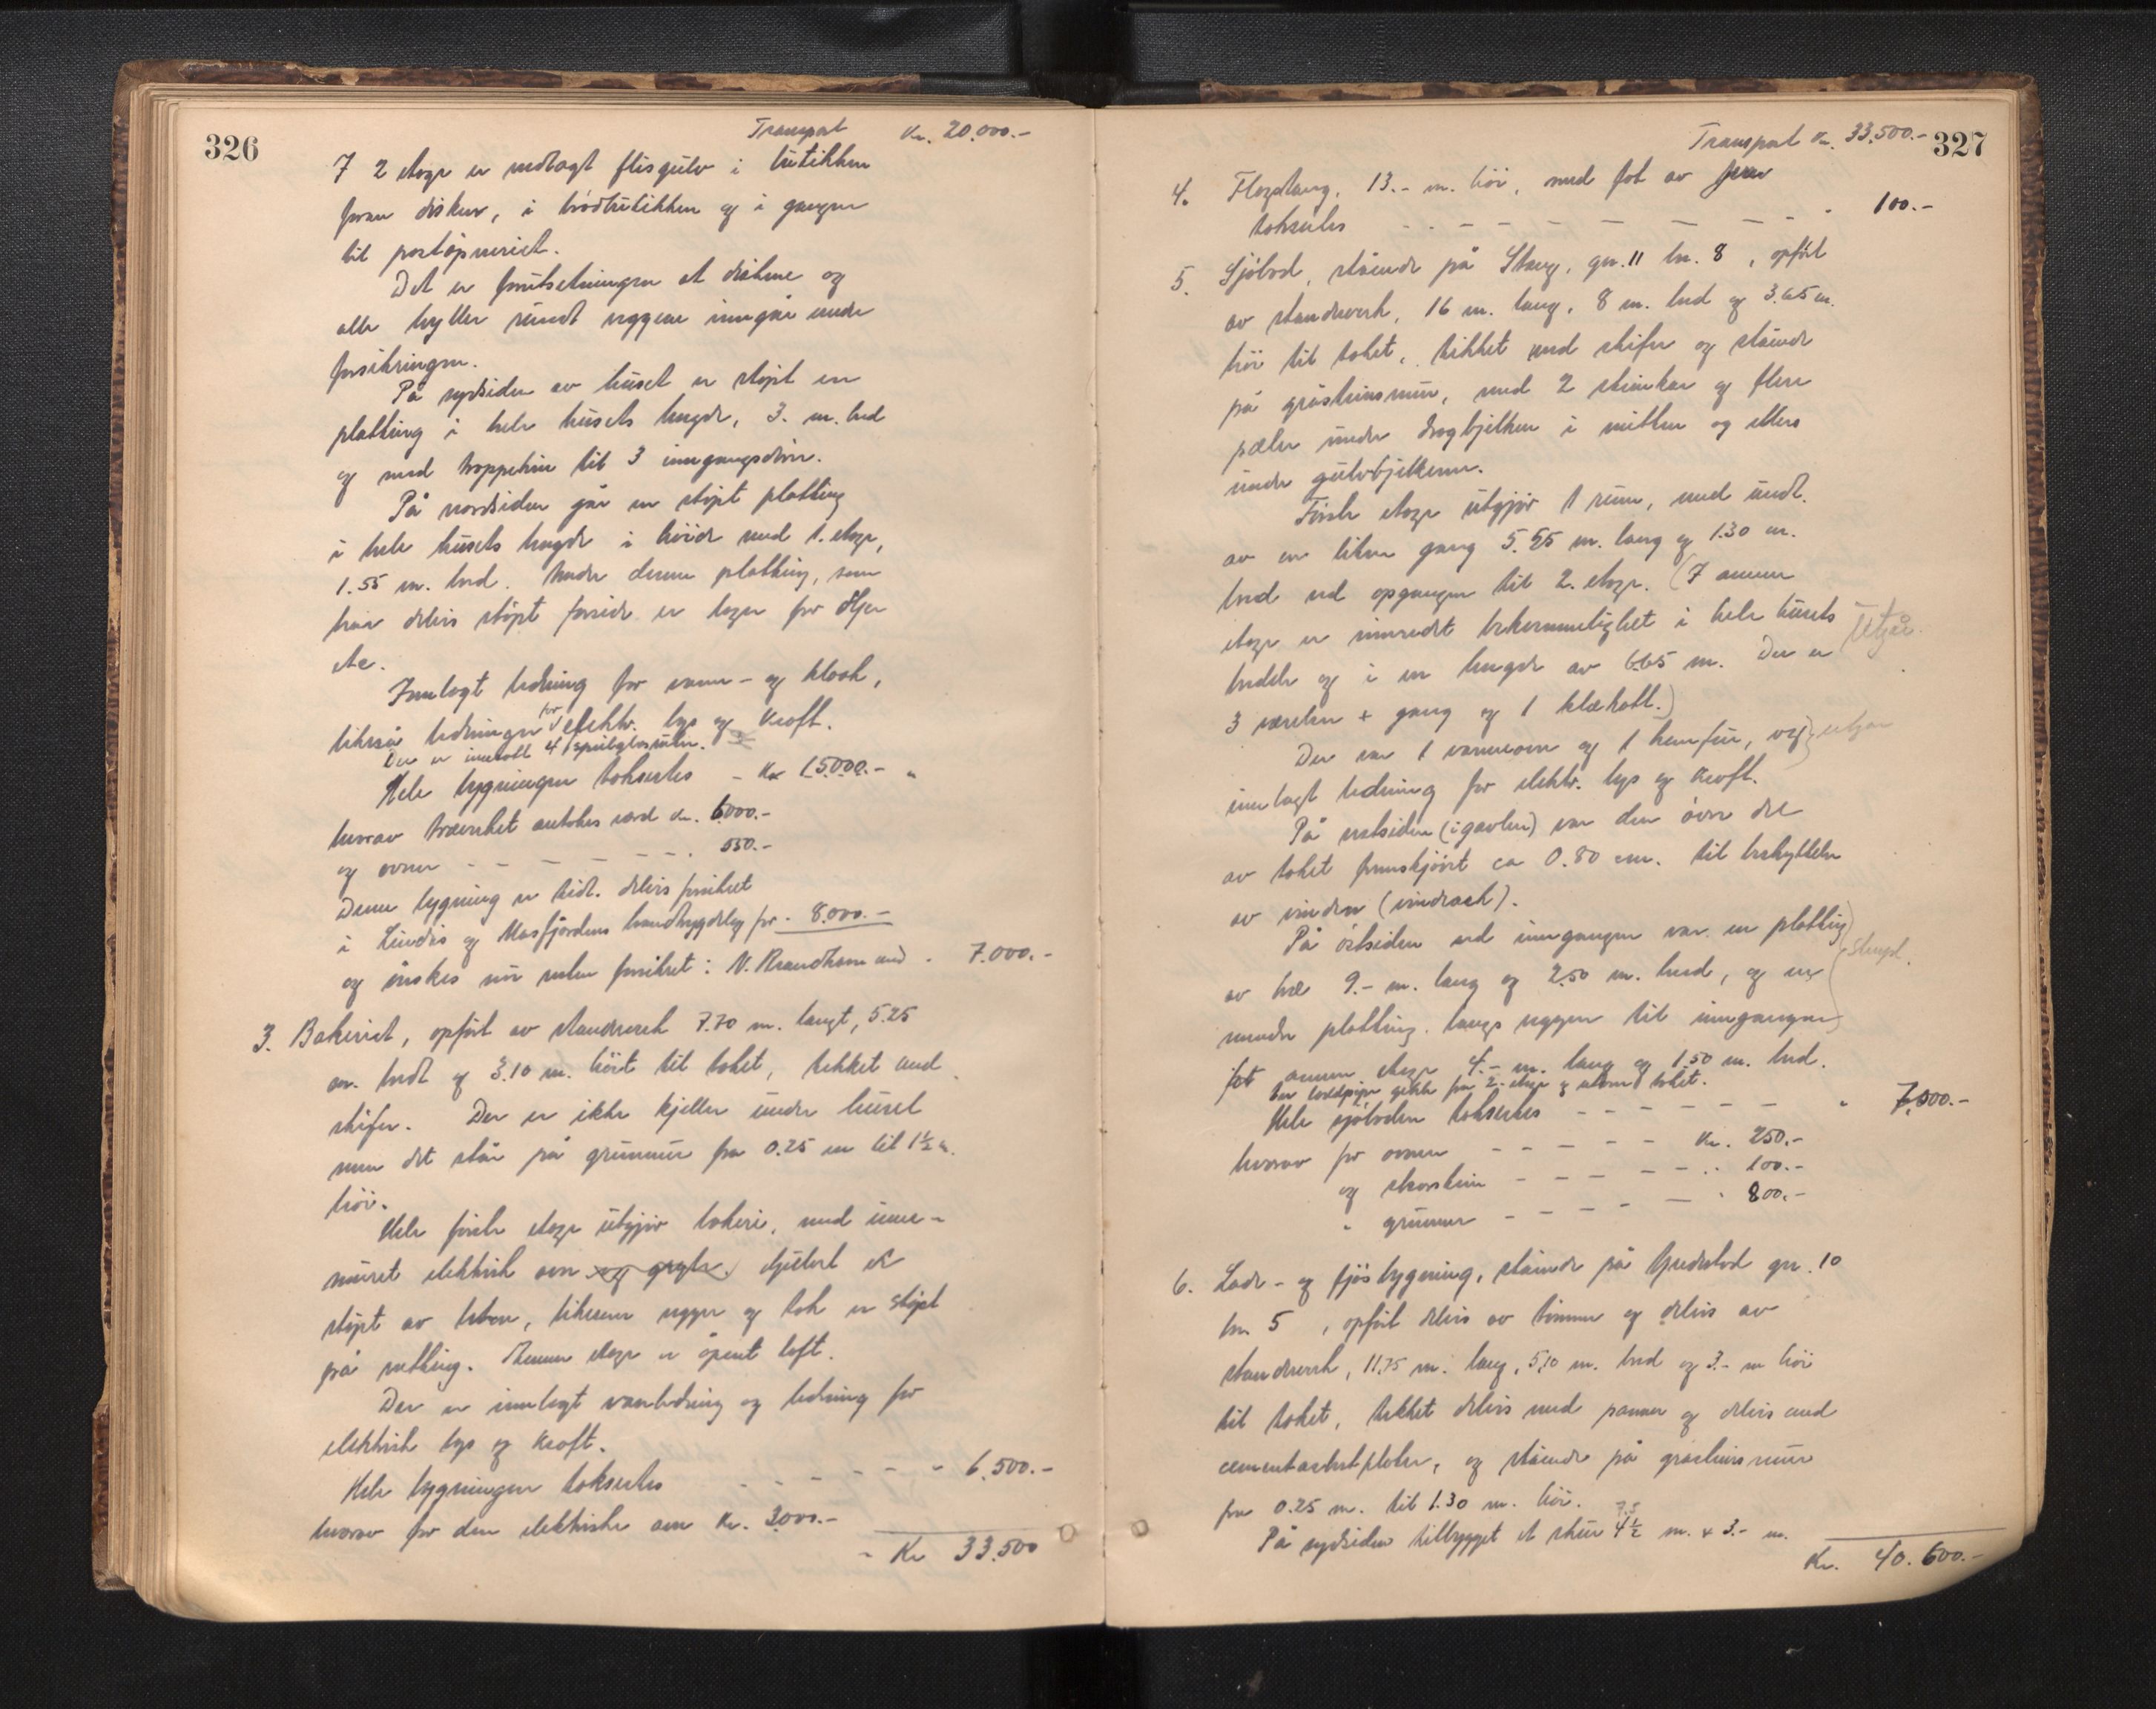 326
Transport Kr. 20.000.-
I 2 etage er nedlagt flisgulv i butikken
foran disken, i brödbutikken og i gangen
til postopneriet.
Det er forutsetningen at diskene og
alle hyller rundt veggene inngår under
forsikringen.
På sydsiden av huset er stöpt en
platting i hele husets lengde, 3. m. bred
og med trappetrin til 3 inngangsdörer.
På nordsiden går en stöpt platting
i hele husets lengde i höide med 1. etage,
1.55 m. bred. Under denne platting, som
har delvis stöpt forside er lager for oljer
etc.
Innlagt ledning for vann- og kloak,
likeså ledninger for elektr. lys og kraft.
Der er innsatt 4 speilglasruter.
Hele bygningen takseres - Kr 15000.- "
hvorav treverket antakes verd Kr. 6000.-
og ovner - - - - - - 550.-
Denne bygning er tidl. delvis forsikret
i Lindås og Masfjordens brandtrygdelag for - 8.000.-
og önskes nu videre forsikret i N. Brandkasse med - 7.000.-
3. Bakeriet, opfört av standverk 7.70 m. langt, 5.25
m. bredt og 3.10 m. höit til taket, tekket med
skifer. Der er ikke kjeller under huset
men det står på grunnmur fra 0.25 m til 1½ m.
höi.
Hele förste etage utgjör bakeri, med inne-
muret elektrisk ovn og gryte. Gulvet er
stöpt av beton, likesom vegger og tak er stöpt
på netting. Annen etage er åpent loft.
Der er innlagt vannledning og ledning for
elektrisk lys og kraft.
Hele bygningen takseres - - - - - - 6.500.-
hvorav for den elektriske ovn Kr. 3000.-
- Kr 33.500
327
Transport Kr. 33.500.-
4. Flagstang, 13.- m. höi, med fot av jern
takseres - - - - - - - - 100.-
5. Sjöbod, stående på Stang, gn. 11 bn. 8, opfört
av standverk, 16 m. lang, 8 m. bred og 3.65 m.
höi til taket, tekket med skifer og stående
på gråstensmur, med 2 stenkar og flere
pæler under dragbjelken i midten og ellers
under gulvbjelkerne.
Förste etage utgjör 1 rum, med undt.
av en liten gang 5.55 m. lang og 1.30 m.
bred ved opgangen til 2. etage. (I annen
etage er innredet bekvemmelighet i hele husets
bredde og i en lengde av 6.65 m. Der er
Utgår.
3 værelser + gang og 1 klækott.)
Der var 1 vannovn og 1 komfur, og utgår
innlagt ledning for elektr. lys og kraft.
På vestsiden (i gavlen) var den övre del
av taket fremskjövet ca 0.80 cm. til beskyttelse
av vinden (vindrask).
På östsiden ved inngangen var en platting
av tre 9.- m. lang og 2.50 m. bred, og en
slöyd.
mindre platting langs veggen til inngangen
for annen etage 4.- m. lang og 1.50 m. bred.
En tordpipe gikk fra 2. etage og utover taket.
Hele sjöboden takseres - - - - - - - 7.000.-
hvorav for ovnen - - - - - Kr. 250.-
og skorsten - - - - - 100.-
" grunnmur - - - - - 800.-
6. Lade- og fjösbygning, stående på Hjedested gn. 10
bn 5, opfört delvis av tömmer og delvis av
standverk, 11.75 m. lang, 5.10 m. bred og 3.- m höi
til taket, tekket delvis med panner og delvis med
cementasbestplater, og stående på gråstensmur
fra 0.25 m. til 1.30 m. höi.
7.5
På sydsiden tilbygget et skur 4½ m. x 3.- m.
Kr. 40.600.-